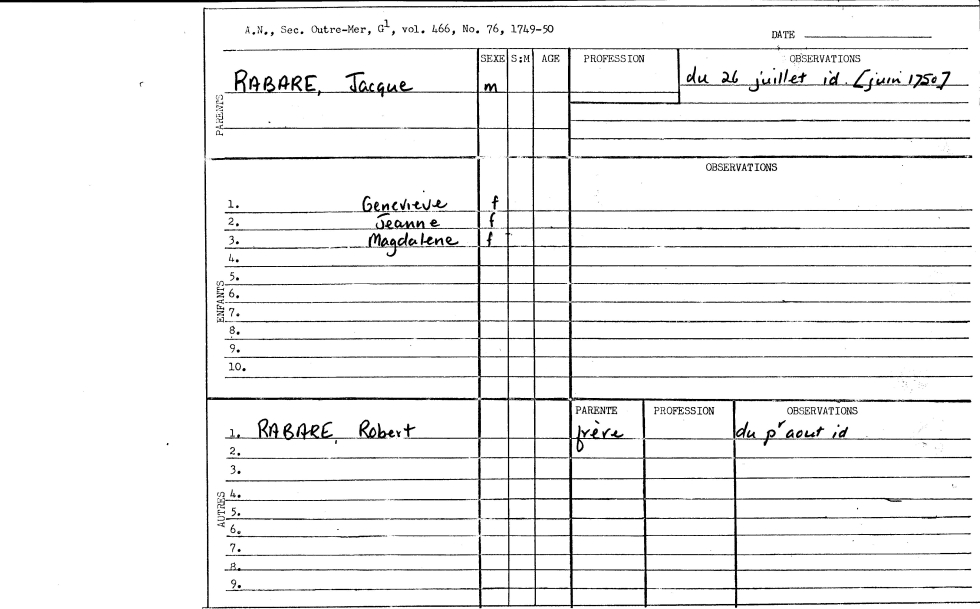 A.N., Sec. Outre-Mer, G1, vol. 466, No. 76, 1749-50
DATE
SEXE S:M AGE PROFESSION OBSERVATIONS
RABARE, Jacque m du 26 juillet id. [juin 1750]
PARENTS
OBSERVATIONS
1. Genevieve f
2. Jeanne f
3. Magdalene f
4.
5.
6.
7.
8.
9.
10.
ENFANTS
PARENTE PROFESSION OBSERVATIONS
1. RABARE, Robert frère du pr aout id
2.
3.
4.
5.
6.
7.
8.
9.
AUTRES